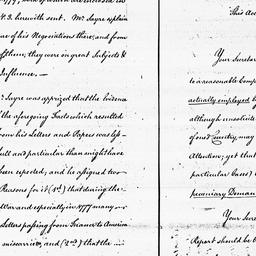 No. 3. herewith sent. Mr Sayre explain
one of his Negotiations there, and from
of them, they were on great Subjects &
Influence. —
Mr Sayre was apprized that the Evidence
the foregoing Facts which resulted
from his Letters and Papers was less
full and particular than might have
been expected, and he assigned two
Reasons for it (1st) that during the
War and especially in 1777 many
Letters passing from France to America
miscarried, and (2nd) that the
This Acc
Your Secreta
to a reasonable Comp
actually employed
although unsolicite
of our Country, may
Attention; yet that
particular Cases)
pecuniary Deman
Your Secre
Report should be